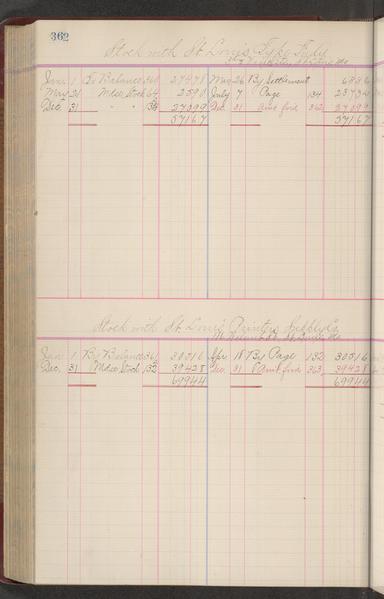 362
Stock with St Louis Type Fdry
Jan. 1 To Balance 360 27478 May 26 By Settlement
May 21 Mdse Stock 64 2590 July 7 Page 134 23734
Dec. 31 " " 27099 Dec. 31 Amt fwd 362 27099
57167 57167
Stock with St Louis Printers Supply Co
Jan 1 By Balance 361 30516 Apr 18 By Page 132 30516
Dec. 31 Mdse Stock 132 39428 Dec. 31 " Amt fwd 363 39428
69944 69944